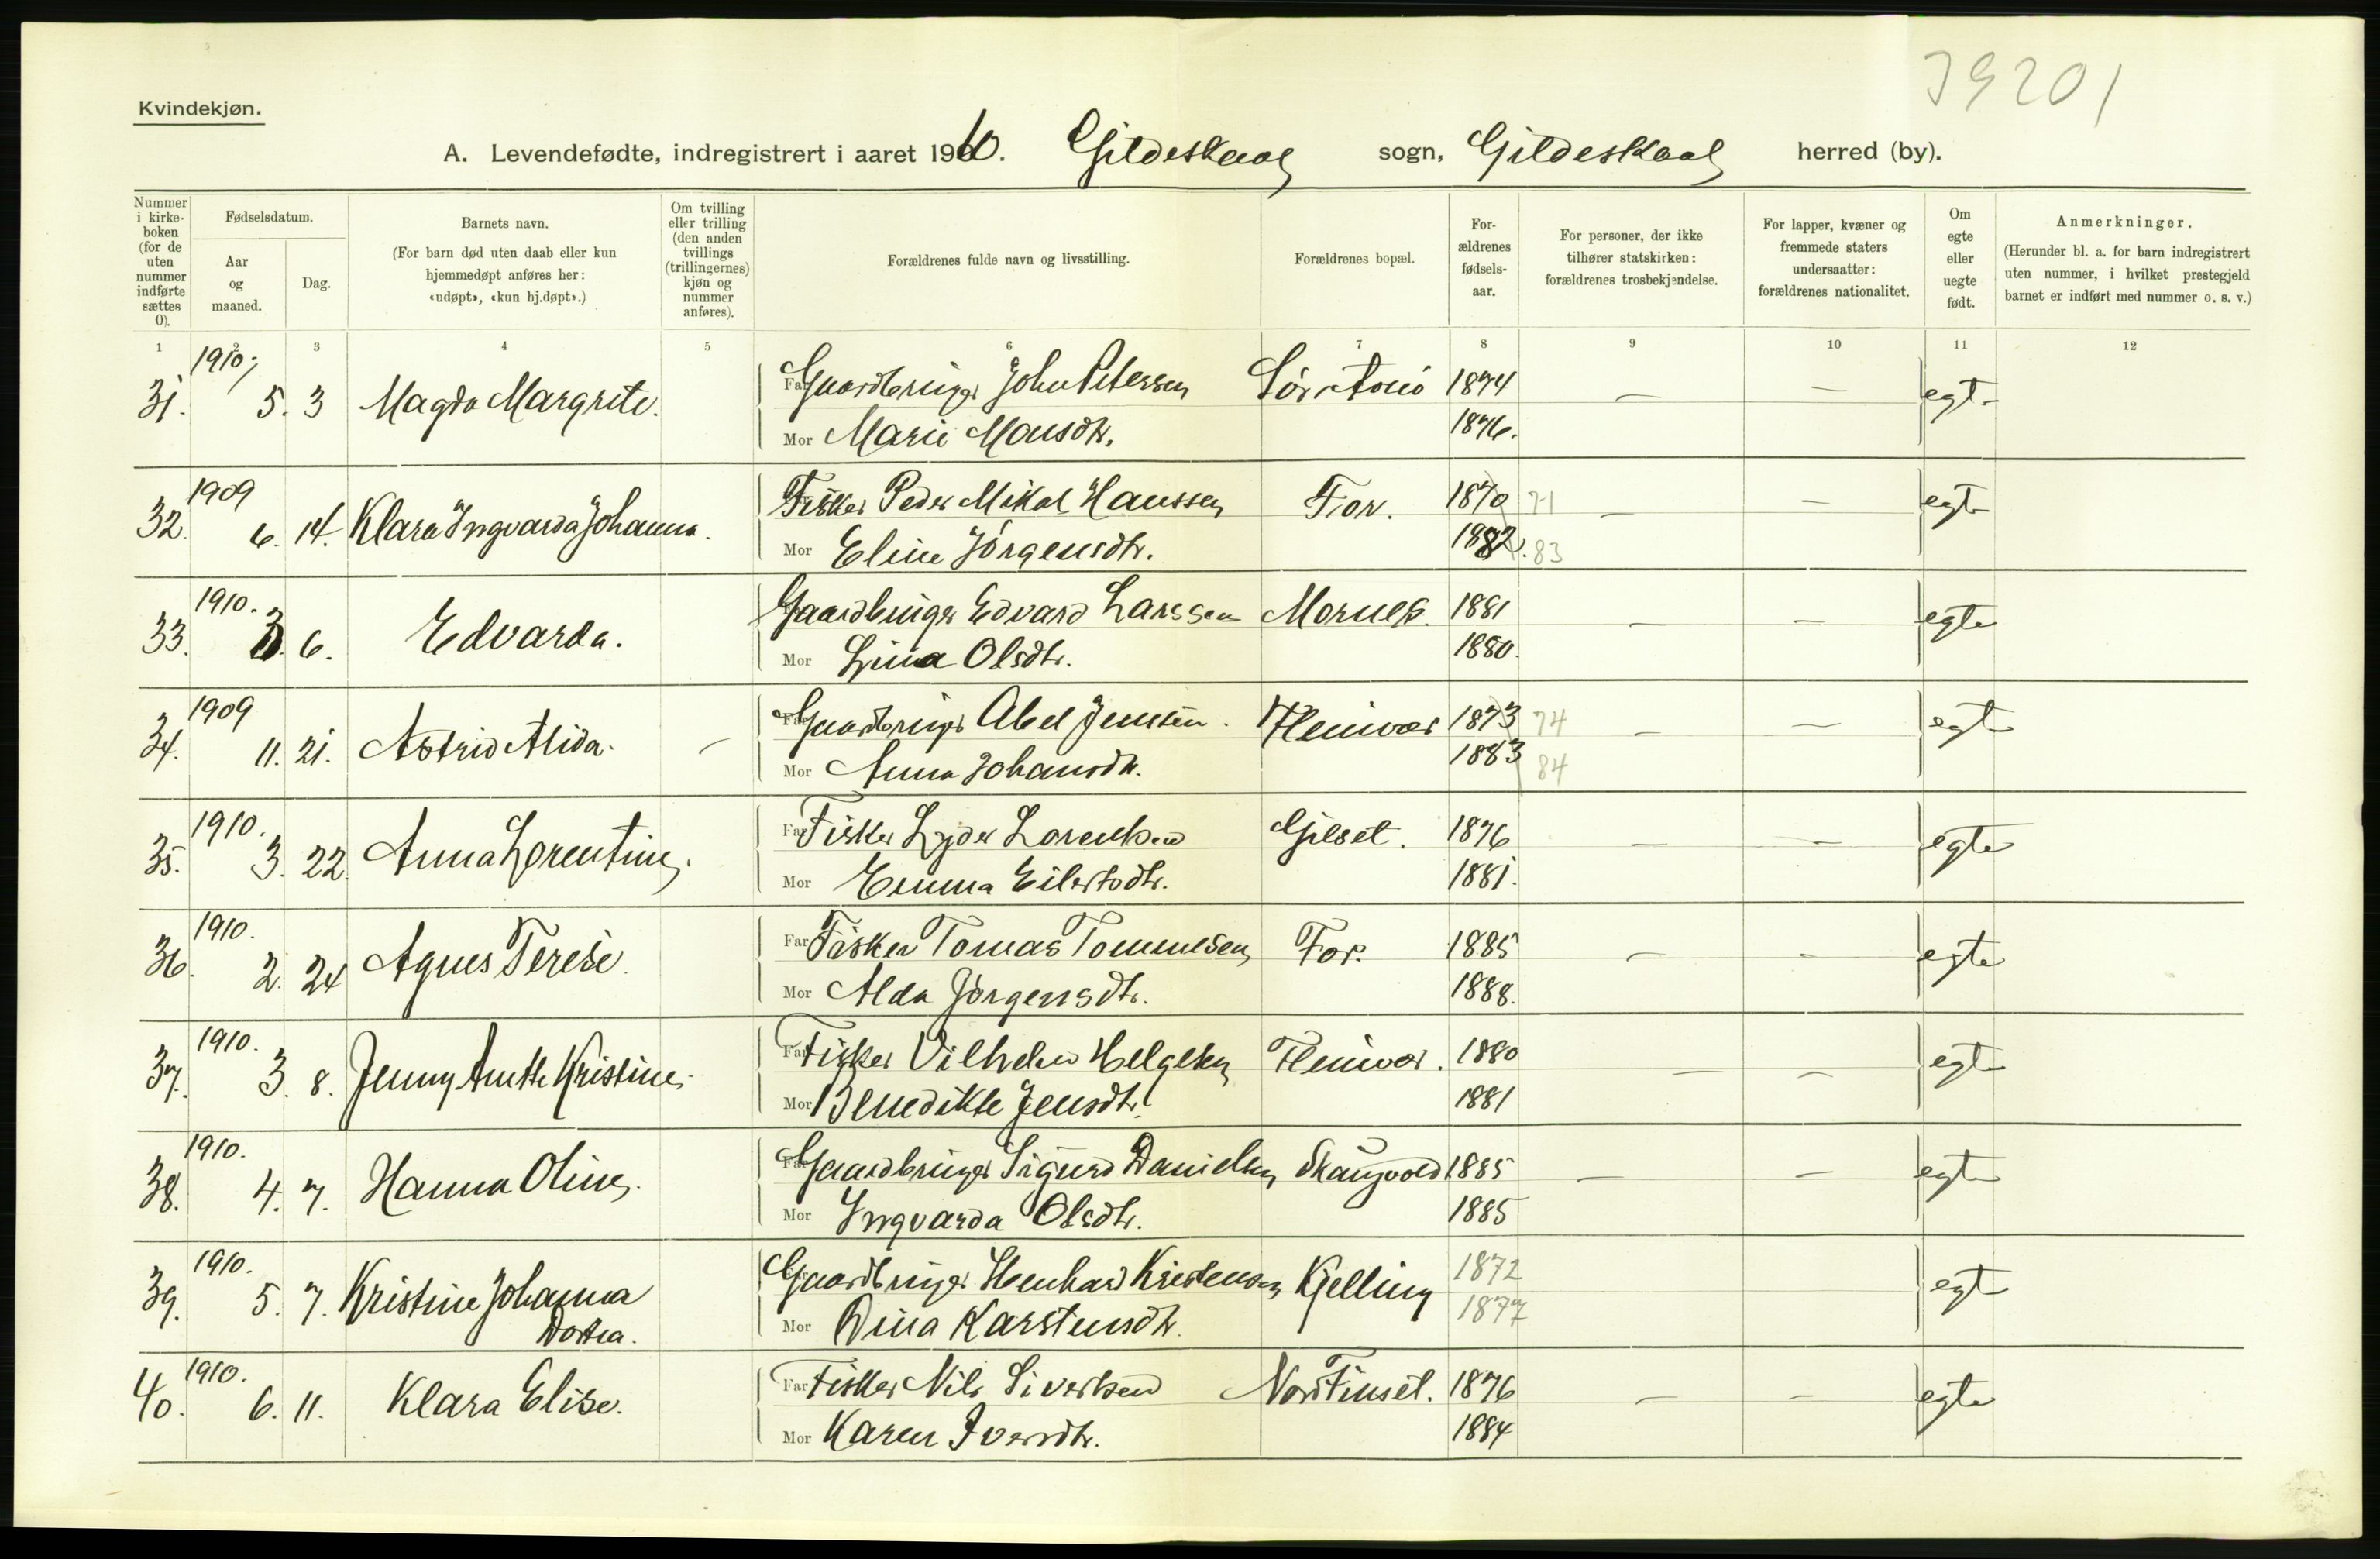 39201
Kvindekjøn.
A. Levendefødte, indregistrert i aaret 1910. Gildeskaal sogn, Gildeskaal herred (by).
Nummer i kirke-boken (for de uten nummer indførte sættes 0).
Fødselsdatum.
Aar og maaned.
Dag.
Barnets navn.
(For barn død uten daab eller kun hjemmedøpt anføres her: «udøpt», «kun hj.døpt».)
Om tvilling eller trilling (den anden tvillings (trillingernes) kjøn og nummer anføres).
Forældrenes fulde navn og livsstilling.
Forældrenes bopæl.
For-ældrenes fødsels-aar.
For personer, der ikke tilhører statskirken: forældrenes trosbekjendelse.
For lapper, kvæner og fremmede staters undersaatter: forældrenes nationalitet.
Om egte eller uegte født.
Anmerkninger.
(Herunder bl. a. for barn indregistrert uten nummer, i hvilket prestegjeld barnet er indført med nummer o. s. v.)
1 2 3 4 5 6 7 8 9 10 11 12
31. 1910, 5. 3 Magda Margrete. Far Gaardbruger John Petersen Sør 1874 — — egte
Mor Marie Monsdtr. 1876.
32. 1909 6. 14. Klara Ingvarda Johanna. Far Fisker Peder Mikal Hanssen For. 1870 71 — — egte
Mor Eline Jørgensdtr. 1882. 83
33. 1910. 3. 6. Edvarda. Gaardbruger Edvard Larssen Mornes. 1881 — — egte
Mor Lina Olsdtr. 1880.
34. 1909 11. 21. Astrid Alida. — Far Gaardbruger Abel Jenssen. Fleinvær 1873 74 — — egte
Mor Anna Johansdtr. 1883 84
35. 1910. 3. 22. Anna Lorentine. Far Fisker Lyder Lorentsen Gjelset. 1876 — — egte
Mor Emma Eilertsdtr. 1881.
36. 1910. 2. 24 Agnes Terese. Far Fisker Tomas Tommesen For. 1885 — — egte
Mor Alda Jørgensdtr. 1888.
37. 1910. 3. 8. Jenny Anette Kristine. Far Fisker Vilhelm Helgesen Fleinvær. 1880 — — egte
Mor Benedikte Jensdtr. 1881
38. 1910. 4. 7. Hanna Oline. Far Gaardbruger Sigurd Danielsen Skaugvold 1885 — — egte
Mor Ingvarda Olsdtr. 1885
39. 1910. 5. 7. Kristine Johanna Gaardbruger Kristensen Kjelling 1872 egte
Dortea. Mor Dina Karstensdtr. 1877
40. 1910. 6. 11. Klara Elise. Far Fisker Nils Sivertsen Nord Finset. 1876 — — egte
Mor Karen Iversdtr. 1884